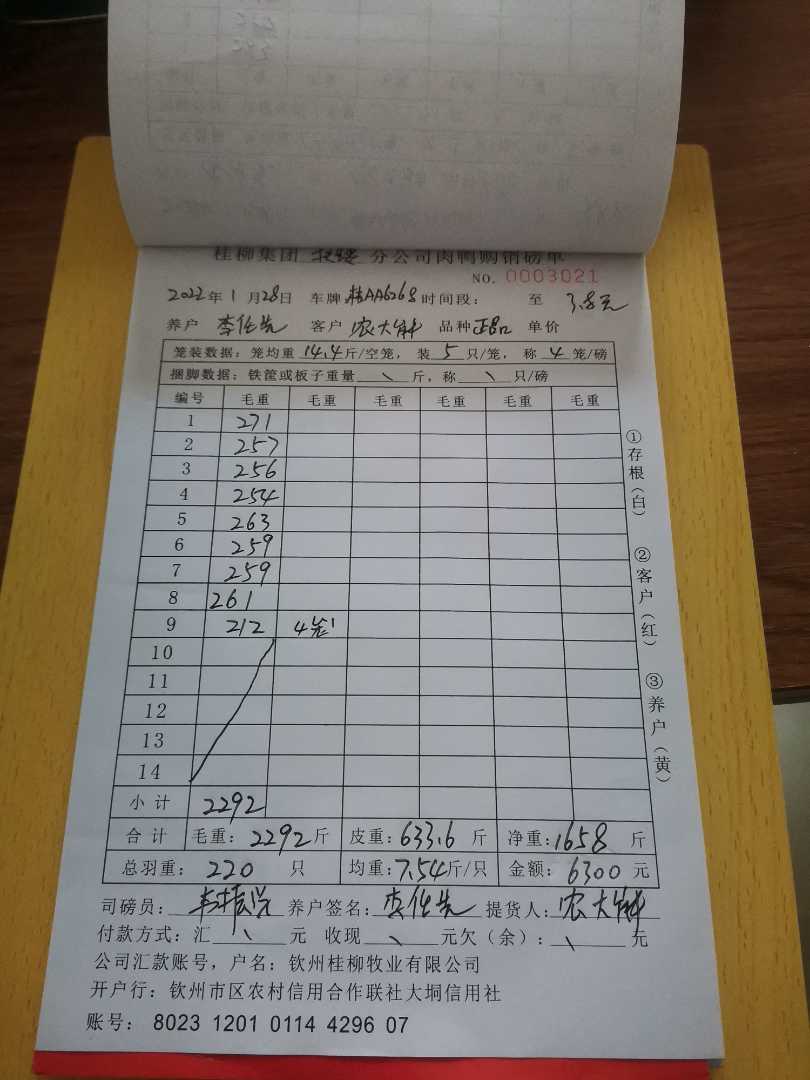 桂柳集团 分公司肉鸭购销磅单
NO. 0003021
2022年1月28日 车牌桂AA6268 时间段: 至 3.8元
养户 李仕先 客户 农大 品种正品 单价
笼装数据: 笼均重14.4斤/空笼, 装5只/笼, 称4笼/磅
捆脚数据: 铁筐或板子重量\斤, 称\只/磅
编号 毛重 毛重 毛重 毛重 毛重 毛重
1 271
2 257
3 256
4 254
5 263
6 259
7 259
8 261
9 212 4笼
10
11
12
13
14
小计 2292
合计 毛重: 2292斤 皮重: 633.6斤 净重: 1658斤
总羽重: 220只 均重: 7.54斤/只 金额: 6300元
司磅员: 养户签名: 李仕先 提货人: 农大
付款方式: 汇\元 收现\元欠(余): \元
公司汇款账号, 户名: 钦州桂柳牧业有限公司
开户行: 钦州市区农村信用合作联社大垌信用社
账号: 8023 1201 0114 4296 07
①存根(白)
②客户(红)
③养户(黄)